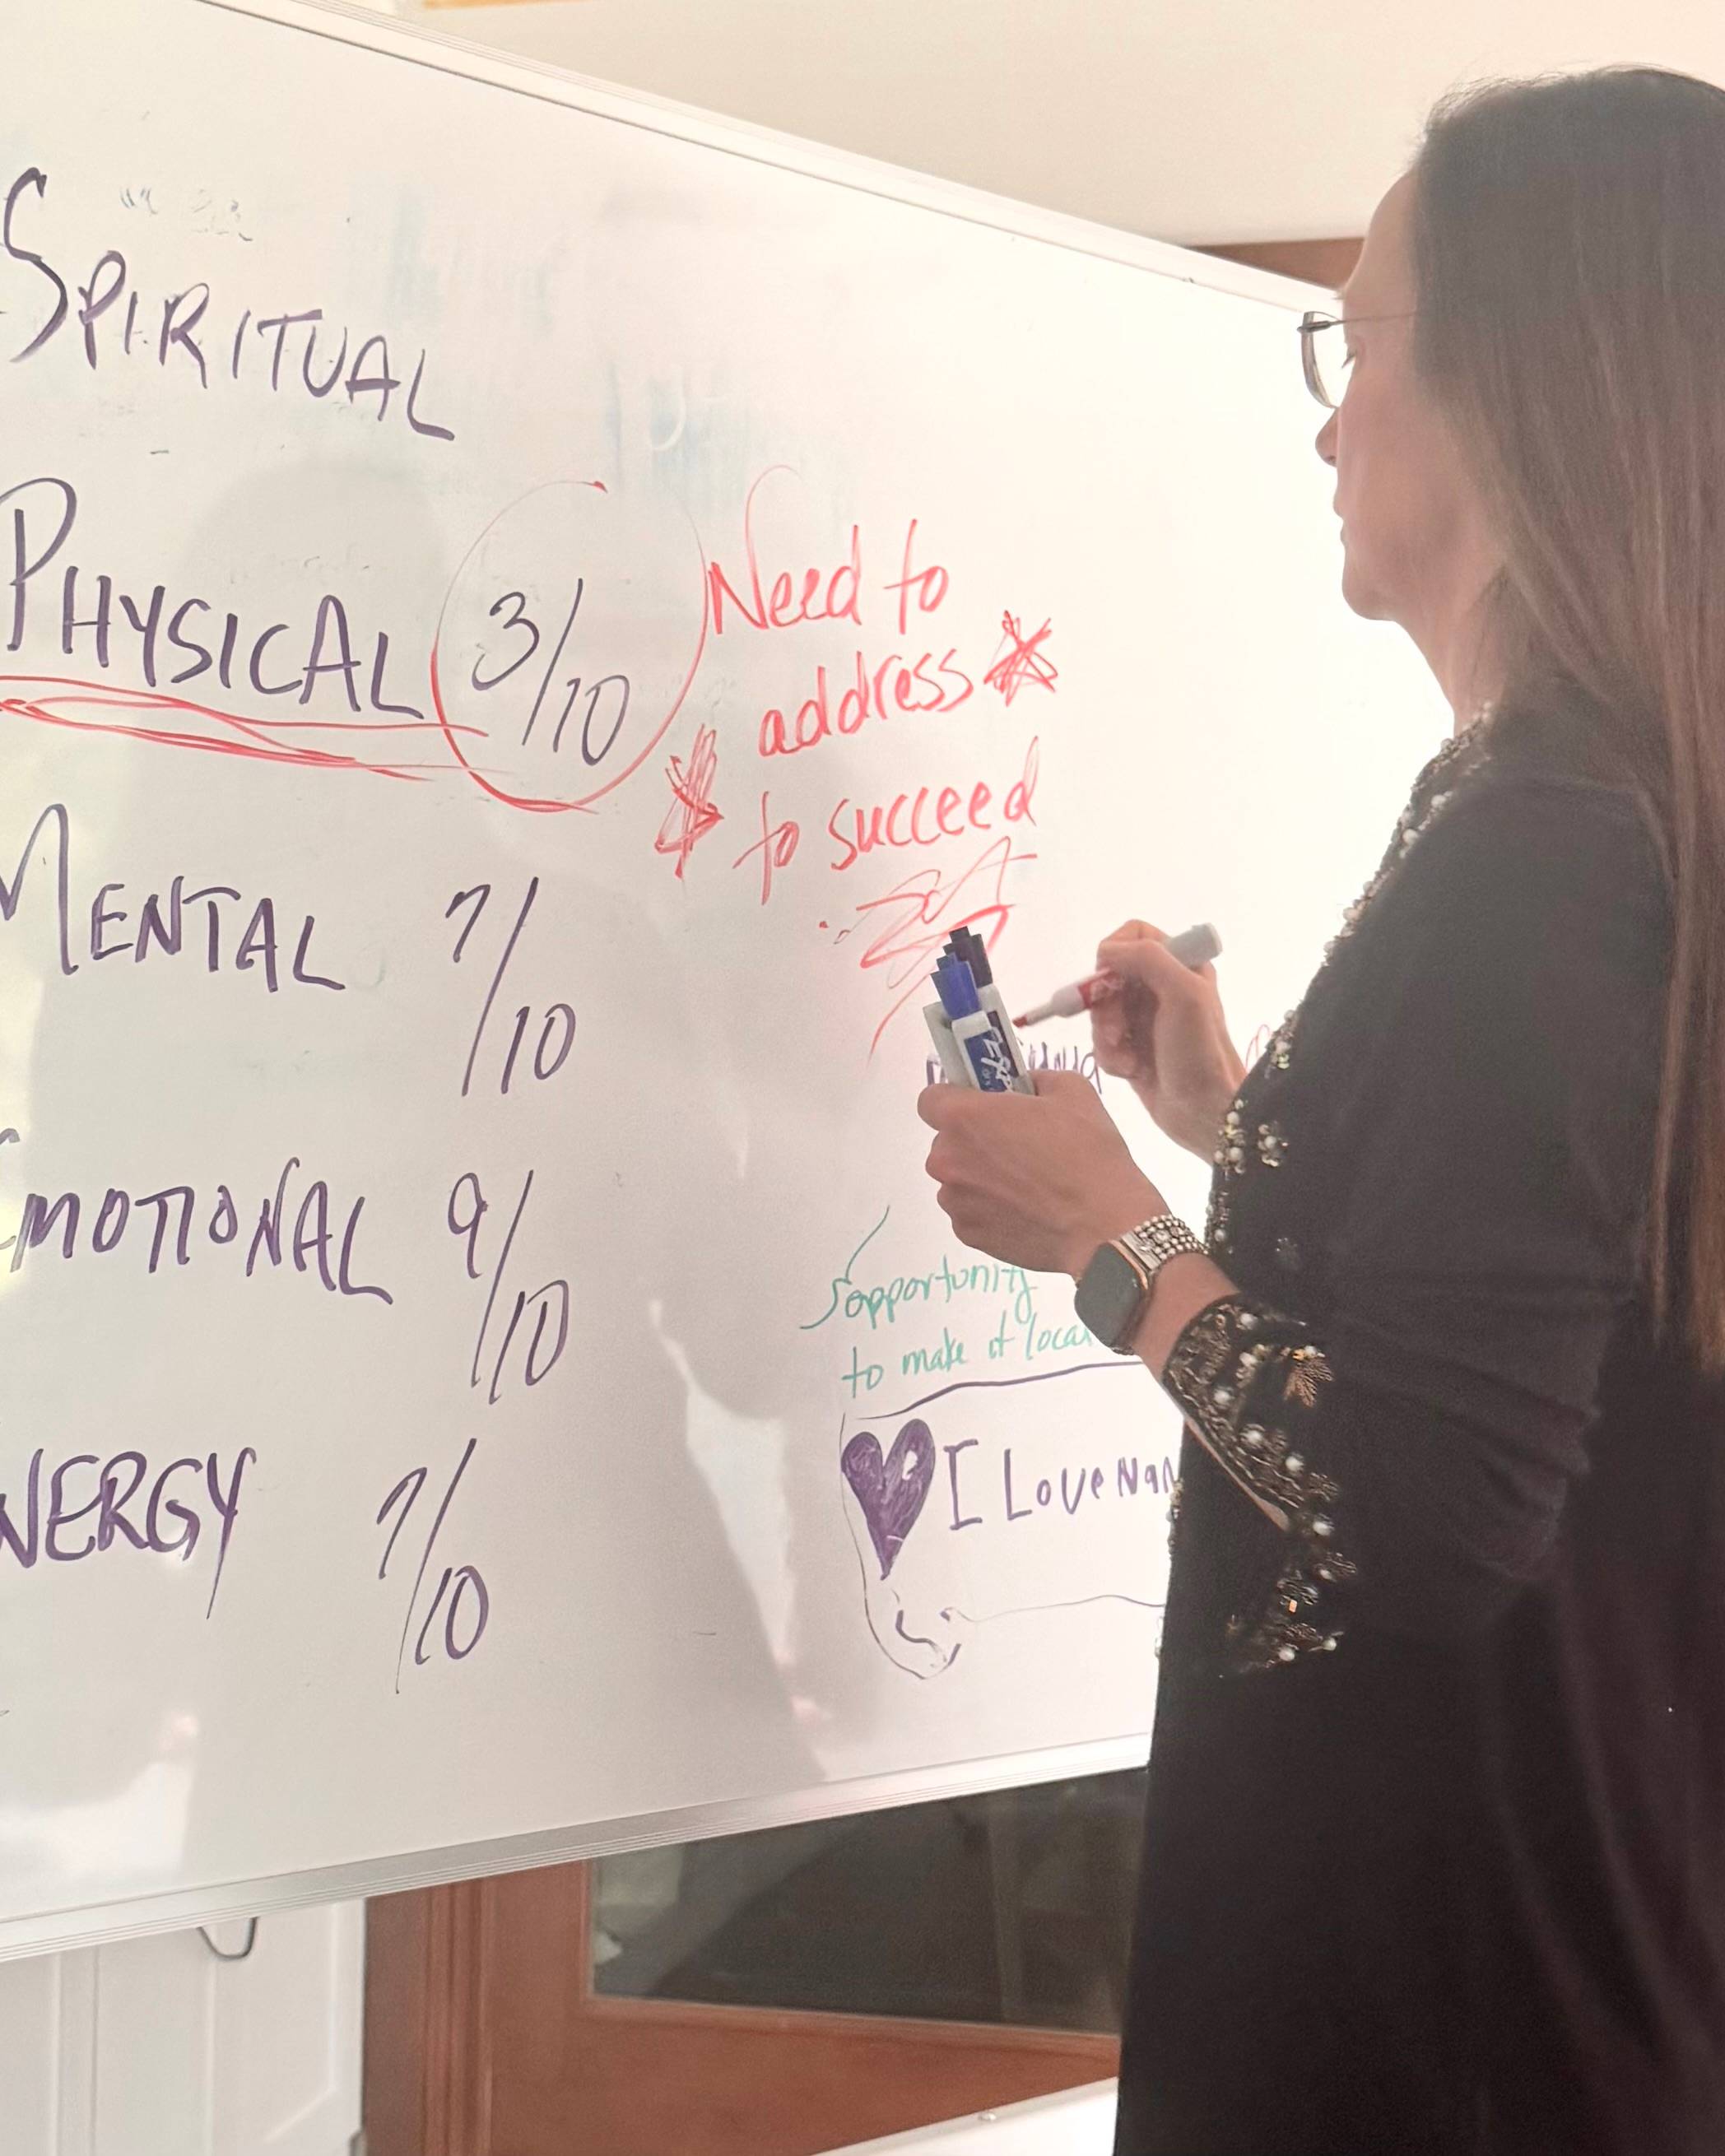 SPIRITUAL
PHYSICAL 3/10
Need to
address
to succeed
MENTAL 7/10
EMOTIONAL 9/10
opportunity
to make it local
NERGY 7/10
I Love Nan